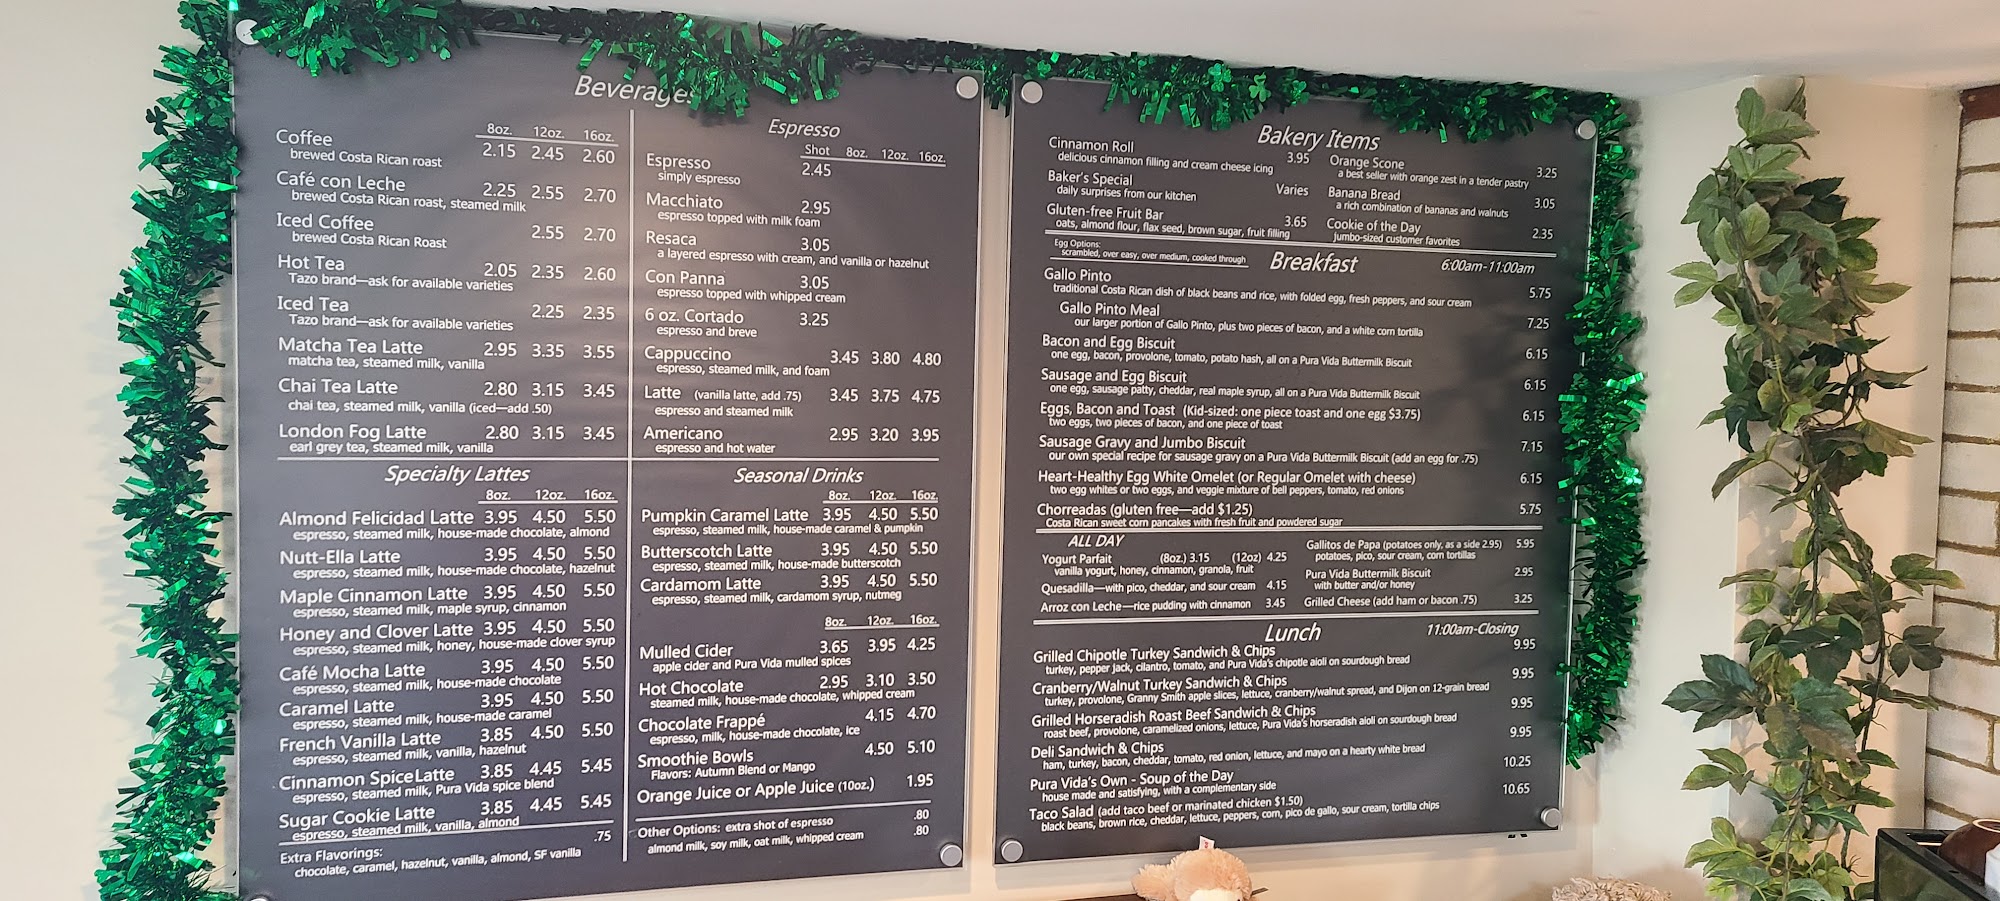 Beverages
8oz. 12oz. 16oz.
Coffee 2.15 2.45 2.60
brewed Costa Rican roast
Café con Leche 2.25 2.55 2.70
brewed Costa Rican roast, steamed milk
Iced Coffee 2.55 2.70
brewed Costa Rican Roast
Hot Tea 2.05 2.35 2.60
Tazo brand—ask for available varieties
Iced Tea 2.25 2.35
Tazo brand—ask for available varieties
Matcha Tea Latte 2.95 3.35 3.55
matcha tea, steamed milk, vanilla
Chai Tea Latte 2.80 3.15 3.45
chai tea, steamed milk, vanilla (iced—add .50)
London Fog Latte 2.80 3.15 3.45
earl grey tea, steamed milk, vanilla
Espresso
Shot 8oz. 12oz. 16oz.
Espresso 2.45
simply espresso
Macchiato 2.95
espresso topped with milk foam
Resaca 3.05
a layered espresso with cream, and vanilla or hazelnut
Con Panna 3.05
espresso topped with whipped cream
6 oz. Cortado 3.25
espresso and breve
Cappuccino 3.45 3.80 4.80
espresso, steamed milk, and foam
Latte (vanilla latte, add .75) 3.45 3.75 4.75
espresso and steamed milk
Americano 2.95 3.20 3.95
espresso and hot water
Specialty Lattes
8oz. 12oz. 16oz.
Almond Felicidad Latte 3.95 4.50 5.50
espresso, steamed milk, house-made chocolate, almond
Nutt-Ella Latte 3.95 4.50 5.50
espresso, steamed milk, house-made chocolate, hazelnut
Maple Cinnamon Latte 3.95 4.50 5.50
espresso, steamed milk, maple syrup, cinnamon
Honey and Clover Latte 3.95 4.50 5.50
espresso, steamed milk, honey, house-made clover syrup
Café Mocha Latte 3.95 4.50 5.50
espresso, steamed milk, house-made chocolate
Caramel Latte 3.95 4.50 5.50
espresso, steamed milk, house-made caramel
French Vanilla Latte 3.85 4.50 5.50
espresso, steamed milk, vanilla, hazelnut
Cinnamon Spice Latte 3.85 4.45 5.45
espresso, steamed milk, Pura Vida spice blend
Sugar Cookie Latte 3.85 4.45 5.45
espresso, steamed milk, vanilla, almond
Extra Flavorings: .75
chocolate, caramel, hazelnut, vanilla, almond, SF vanilla
Seasonal Drinks
8oz. 12oz. 16oz.
Pumpkin Caramel Latte 3.95 4.50 5.50
espresso, steamed milk, house-made caramel & pumpkin
Butterscotch Latte 3.95 4.50 5.50
espresso, steamed milk, house-made butterscotch
Cardamom Latte 3.95 4.50 5.50
espresso, steamed milk, cardamom syrup, nutmeg
8oz. 12oz. 16oz.
Mulled Cider 3.65 3.95 4.25
apple cider and Pura Vida mulled spices
Hot Chocolate 2.95 3.10 3.50
steamed milk, house-made chocolate, whipped cream
Chocolate Frappé 4.15 4.70
espresso, milk, house-made chocolate, ice
Smoothie Bowls 4.50 5.10
Flavors: Autumn Blend or Mango
Orange Juice or Apple Juice (10oz.) 1.95
Other Options: extra shot of espresso .80
almond milk, soy milk, oat milk, whipped cream .80
Bakery Items
Cinnamon Roll 3.95
delicious cinnamon filling and cream cheese icing
Baker's Special Varies
daily surprises from our kitchen
Gluten-free Fruit Bar 3.65
oats, almond flour, flax seed, brown sugar, fruit filling
Orange Scone 3.25
a best seller with orange zest in a tender pastry
Banana Bread 3.05
a rich combination of bananas and walnuts
Cookie of the Day 2.35
jumbo-sized customer favorites
Egg Options:
scrambled, over easy, over medium, cooked through
Breakfast 6:00am-11:00am
Gallo Pinto 5.75
traditional Costa Rican dish of black beans and rice, with folded egg, fresh peppers, and sour cream
Gallo Pinto Meal 7.25
our larger portion of Gallo Pinto, plus two pieces of bacon, and a white corn tortilla
Bacon and Egg Biscuit 6.15
one egg, bacon, provolone, tomato, potato hash, all on a Pura Vida Buttermilk Biscuit
Sausage and Egg Biscuit 6.15
one egg, sausage patty, cheddar, real maple syrup, all on a Pura Vida Buttermilk Biscuit
Eggs, Bacon and Toast (Kid-sized: one piece toast and one egg $3.75) 6.15
two eggs, two pieces of bacon, and one piece of toast
Sausage Gravy and Jumbo Biscuit 7.15
our own special recipe for sausage gravy on a Pura Vida Buttermilk Biscuit (add an egg for .75)
Heart-Healthy Egg White Omelet (or Regular Omelet with cheese) 6.15
two egg whites or two eggs, and veggie mixture of bell peppers, tomato, red onions
Chorreadas (gluten free—add $1.25) 5.75
Costa Rican sweet corn pancakes with fresh fruit and powdered sugar
ALL DAY
Yogurt Parfait (8oz.) 3.15 (12oz) 4.25
vanilla yogurt, honey, cinnamon, granola, fruit
Quesadilla—with pico, cheddar, and sour cream 4.15
Arroz con Leche—rice pudding with cinnamon 3.45
Gallitos de Papa (potatoes only, as a side 2.95) 5.95
potatoes, pico, sour cream, corn tortillas
Pura Vida Buttermilk Biscuit 2.95
with butter and/or honey
Grilled Cheese (add ham or bacon .75) 3.25
Lunch 11:00am-Closing
Grilled Chipotle Turkey Sandwich & Chips 9.95
turkey, pepper jack, cilantro, tomato, and Pura Vida's chipotle aioli on sourdough bread
Cranberry/Walnut Turkey Sandwich & Chips 9.95
turkey, provolone, Granny Smith apple slices, lettuce, cranberry/walnut spread, and Dijon on 12-grain bread
Grilled Horseradish Roast Beef Sandwich & Chips 9.95
roast beef, provolone, caramelized onions, lettuce, Pura Vida's horseradish aioli on sourdough bread
Deli Sandwich & Chips 9.95
ham, turkey, bacon, cheddar, tomato, red onion, lettuce, and mayo on a hearty white bread
Pura Vida's Own - Soup of the Day 10.25
house made and satisfying, with a complementary side
Taco Salad (add taco beef or marinated chicken $1.50) 10.65
black beans, brown rice, cheddar, lettuce, peppers, corn, pico de gallo, sour cream, tortilla chips